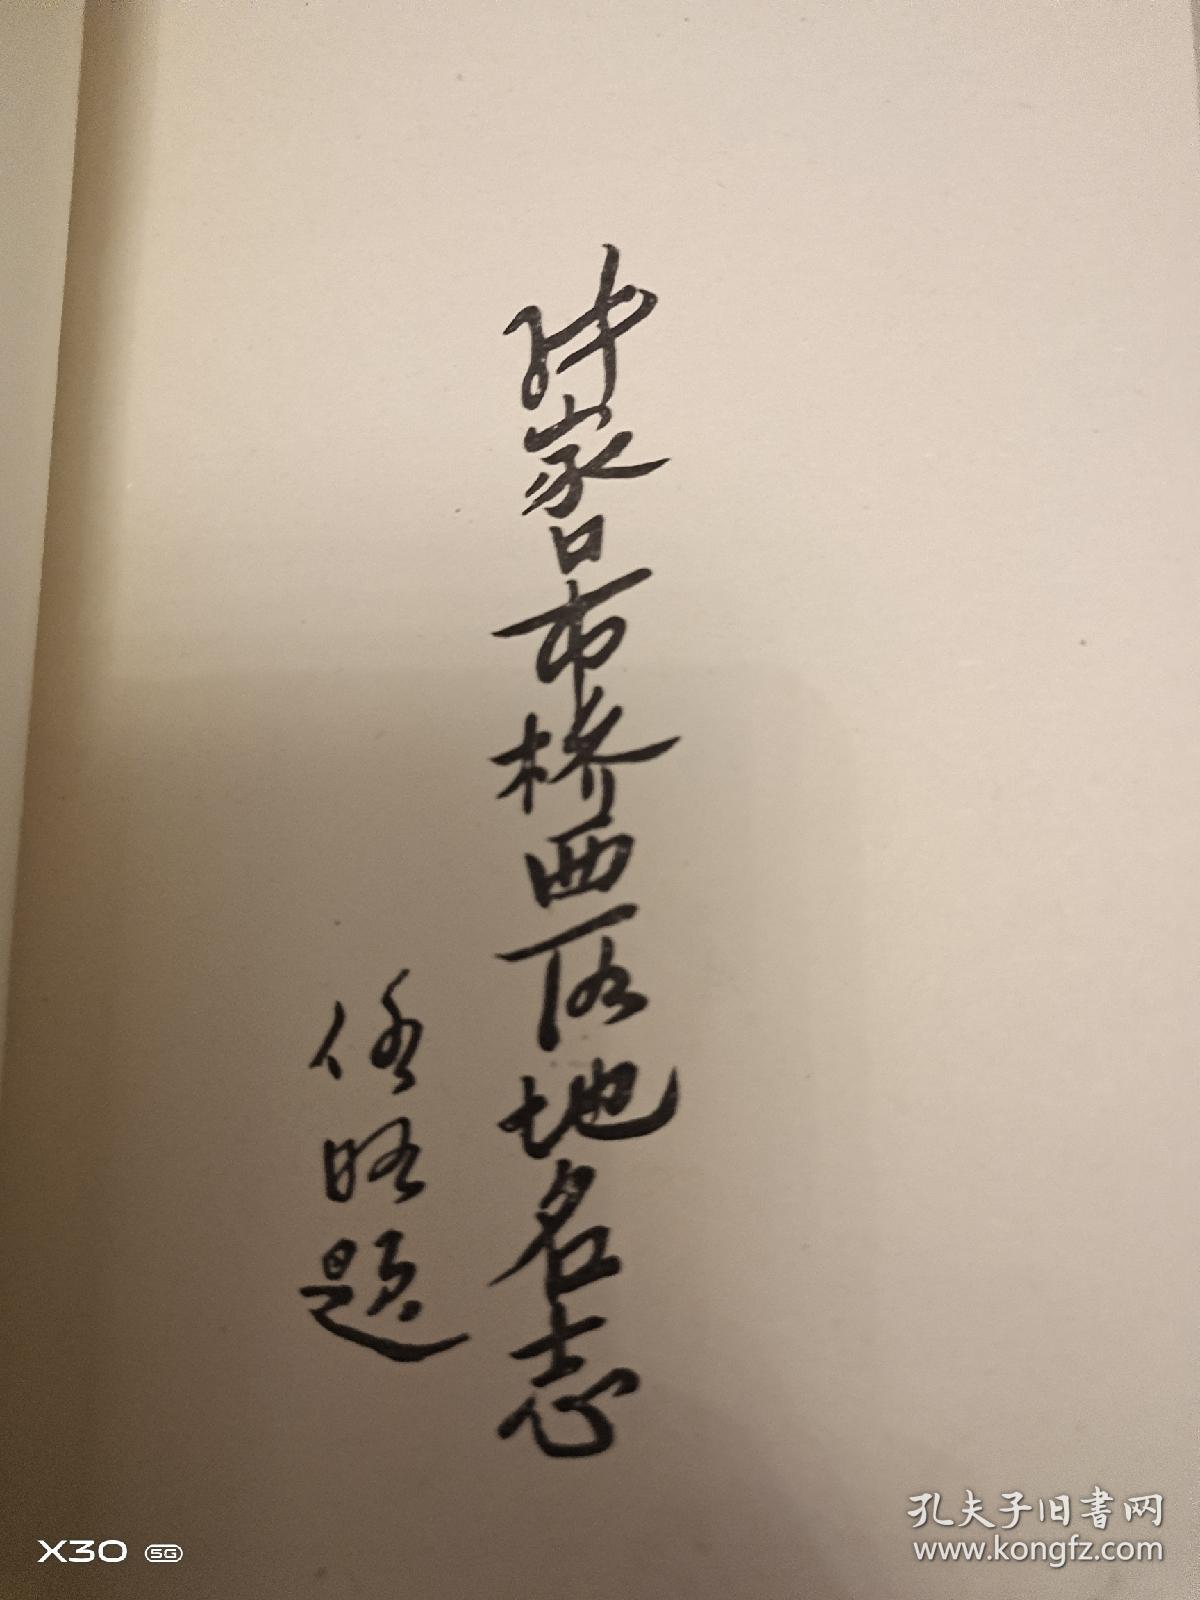 张家口市桥西区地名志
题
孔夫子旧书网
www.kongfz.com
X30 5G